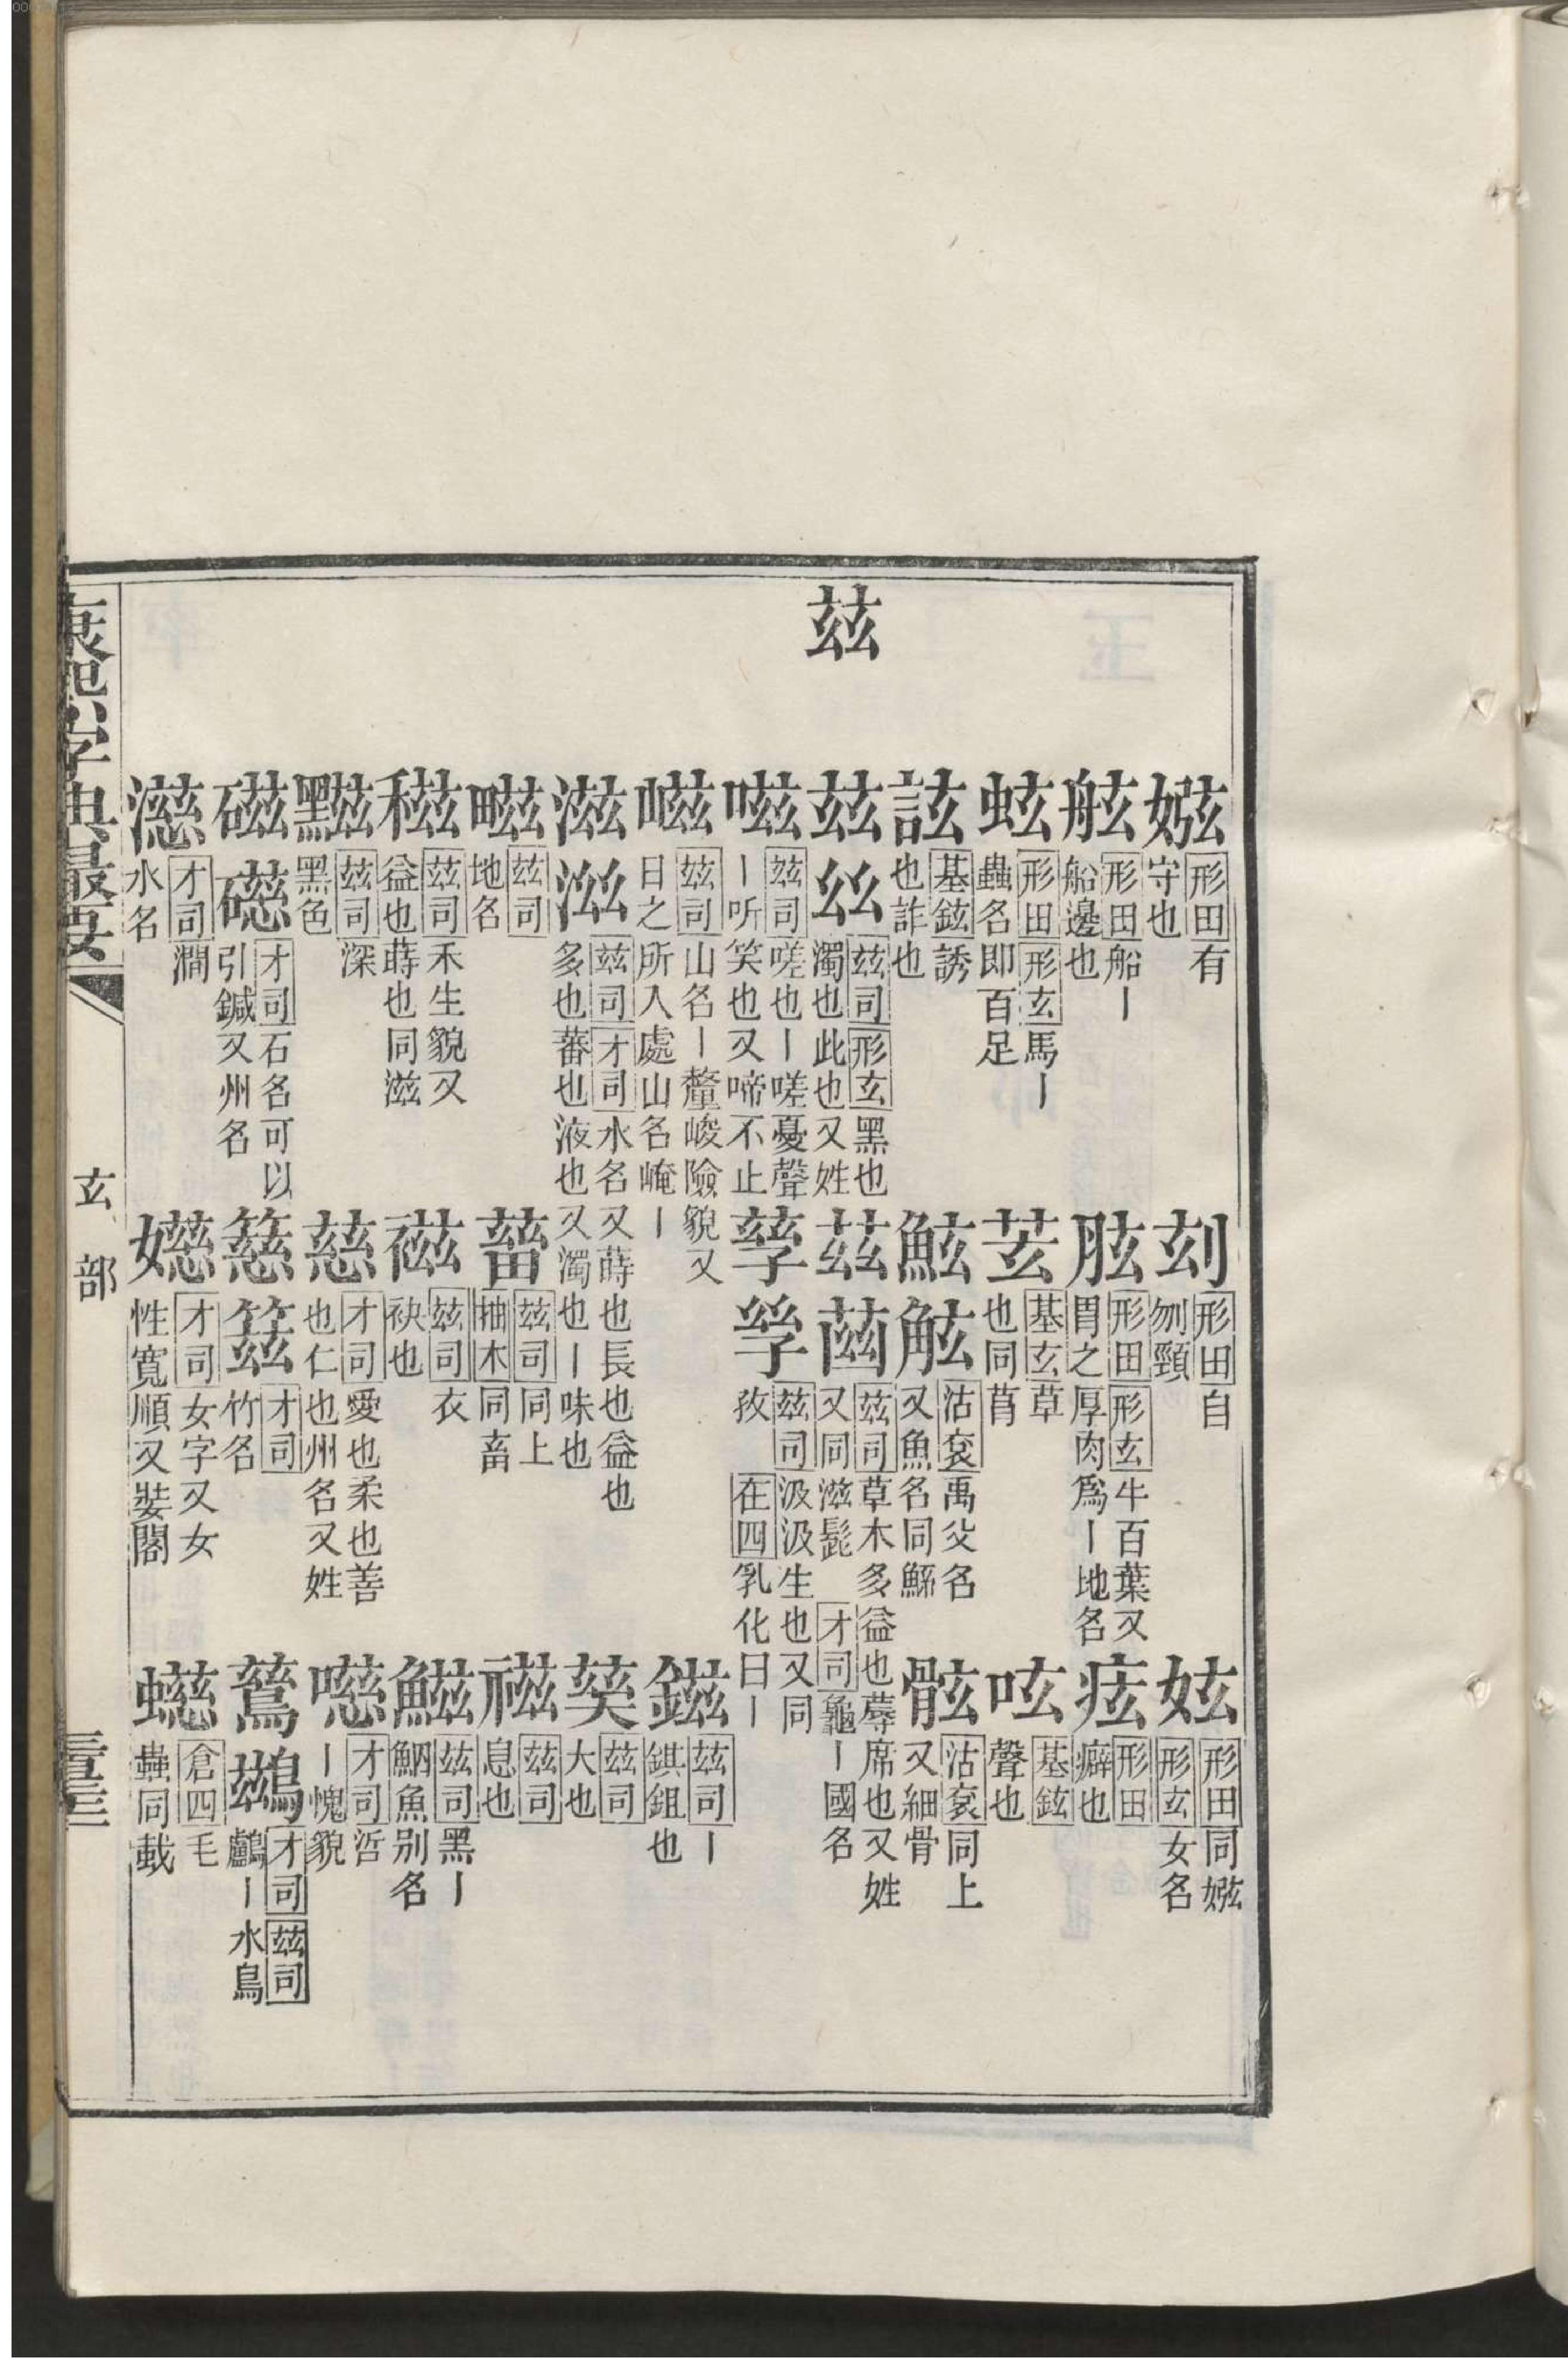 玆
婲形田有守也
刻形田自刎頸
妶形田形玄同婲女名
舷形田船丨船邊也
胘形田形玄牛百葉又胃之厚肉爲丨地名
痃形田癖也
蚿形田形玄馬丨蟲名即百足
苀基玄草也同莔
呟基鉉聲也
詃基鉉誘也詐也
鮌䱄沽袞禹父名又魚名同鯀
骸沽袞同上又細骨
玆𢆶玆司形玄黑也濁也此也又姓
茲䓜玆司草木多益也蓐席也又姓又同滋髭才司龜丨國名
嗞玆司嗟也丨嗟憂聲丨听笑也又啼不止
孳孶玆司汲汲生也又同孜在四乳化曰丨
嵫玆司山名丨釐峻險貌又日之所入處山名崦丨
滋玆司才司水名又蒔也長也益也多也蕃也液也又濁也丨味也
鎡玆司丨錤鉏也
玆司地名
蓄玆司同上抽木同畜
玆司大也
稵玆司禾生貌又益也蒔也同滋
玆司衣袂也
禌玆司息也
黰玆司深黑色
慈才司愛也柔也善也仁也州名又姓
鰦玆司黑丨鮂魚别名
磁礠才司石名可以引鍼又州名
才司竹名
才司哲丨愧貌
濨才司澗水名
嬨才司女字又女性寬順又娤閣
鶿鷀才司玆司鸕丨水鳥
螆倉四毛蟲同蛓
康熙字典最要
玄部